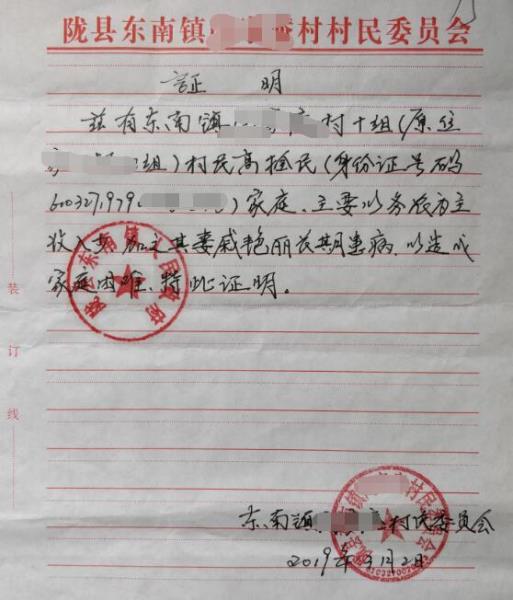 陇县东南镇村村民委员会
证 明
兹有东南镇村十组(原住
组)村民高拴民(身份证号码
6103271979)家庭、主要以务农为主
收入少,加之其妻戚艳丽长期患病,以造成
家庭困难,特此证明。
陇县东南镇人民政府
装
订
线
东南镇村民委员会
2019年3月2日